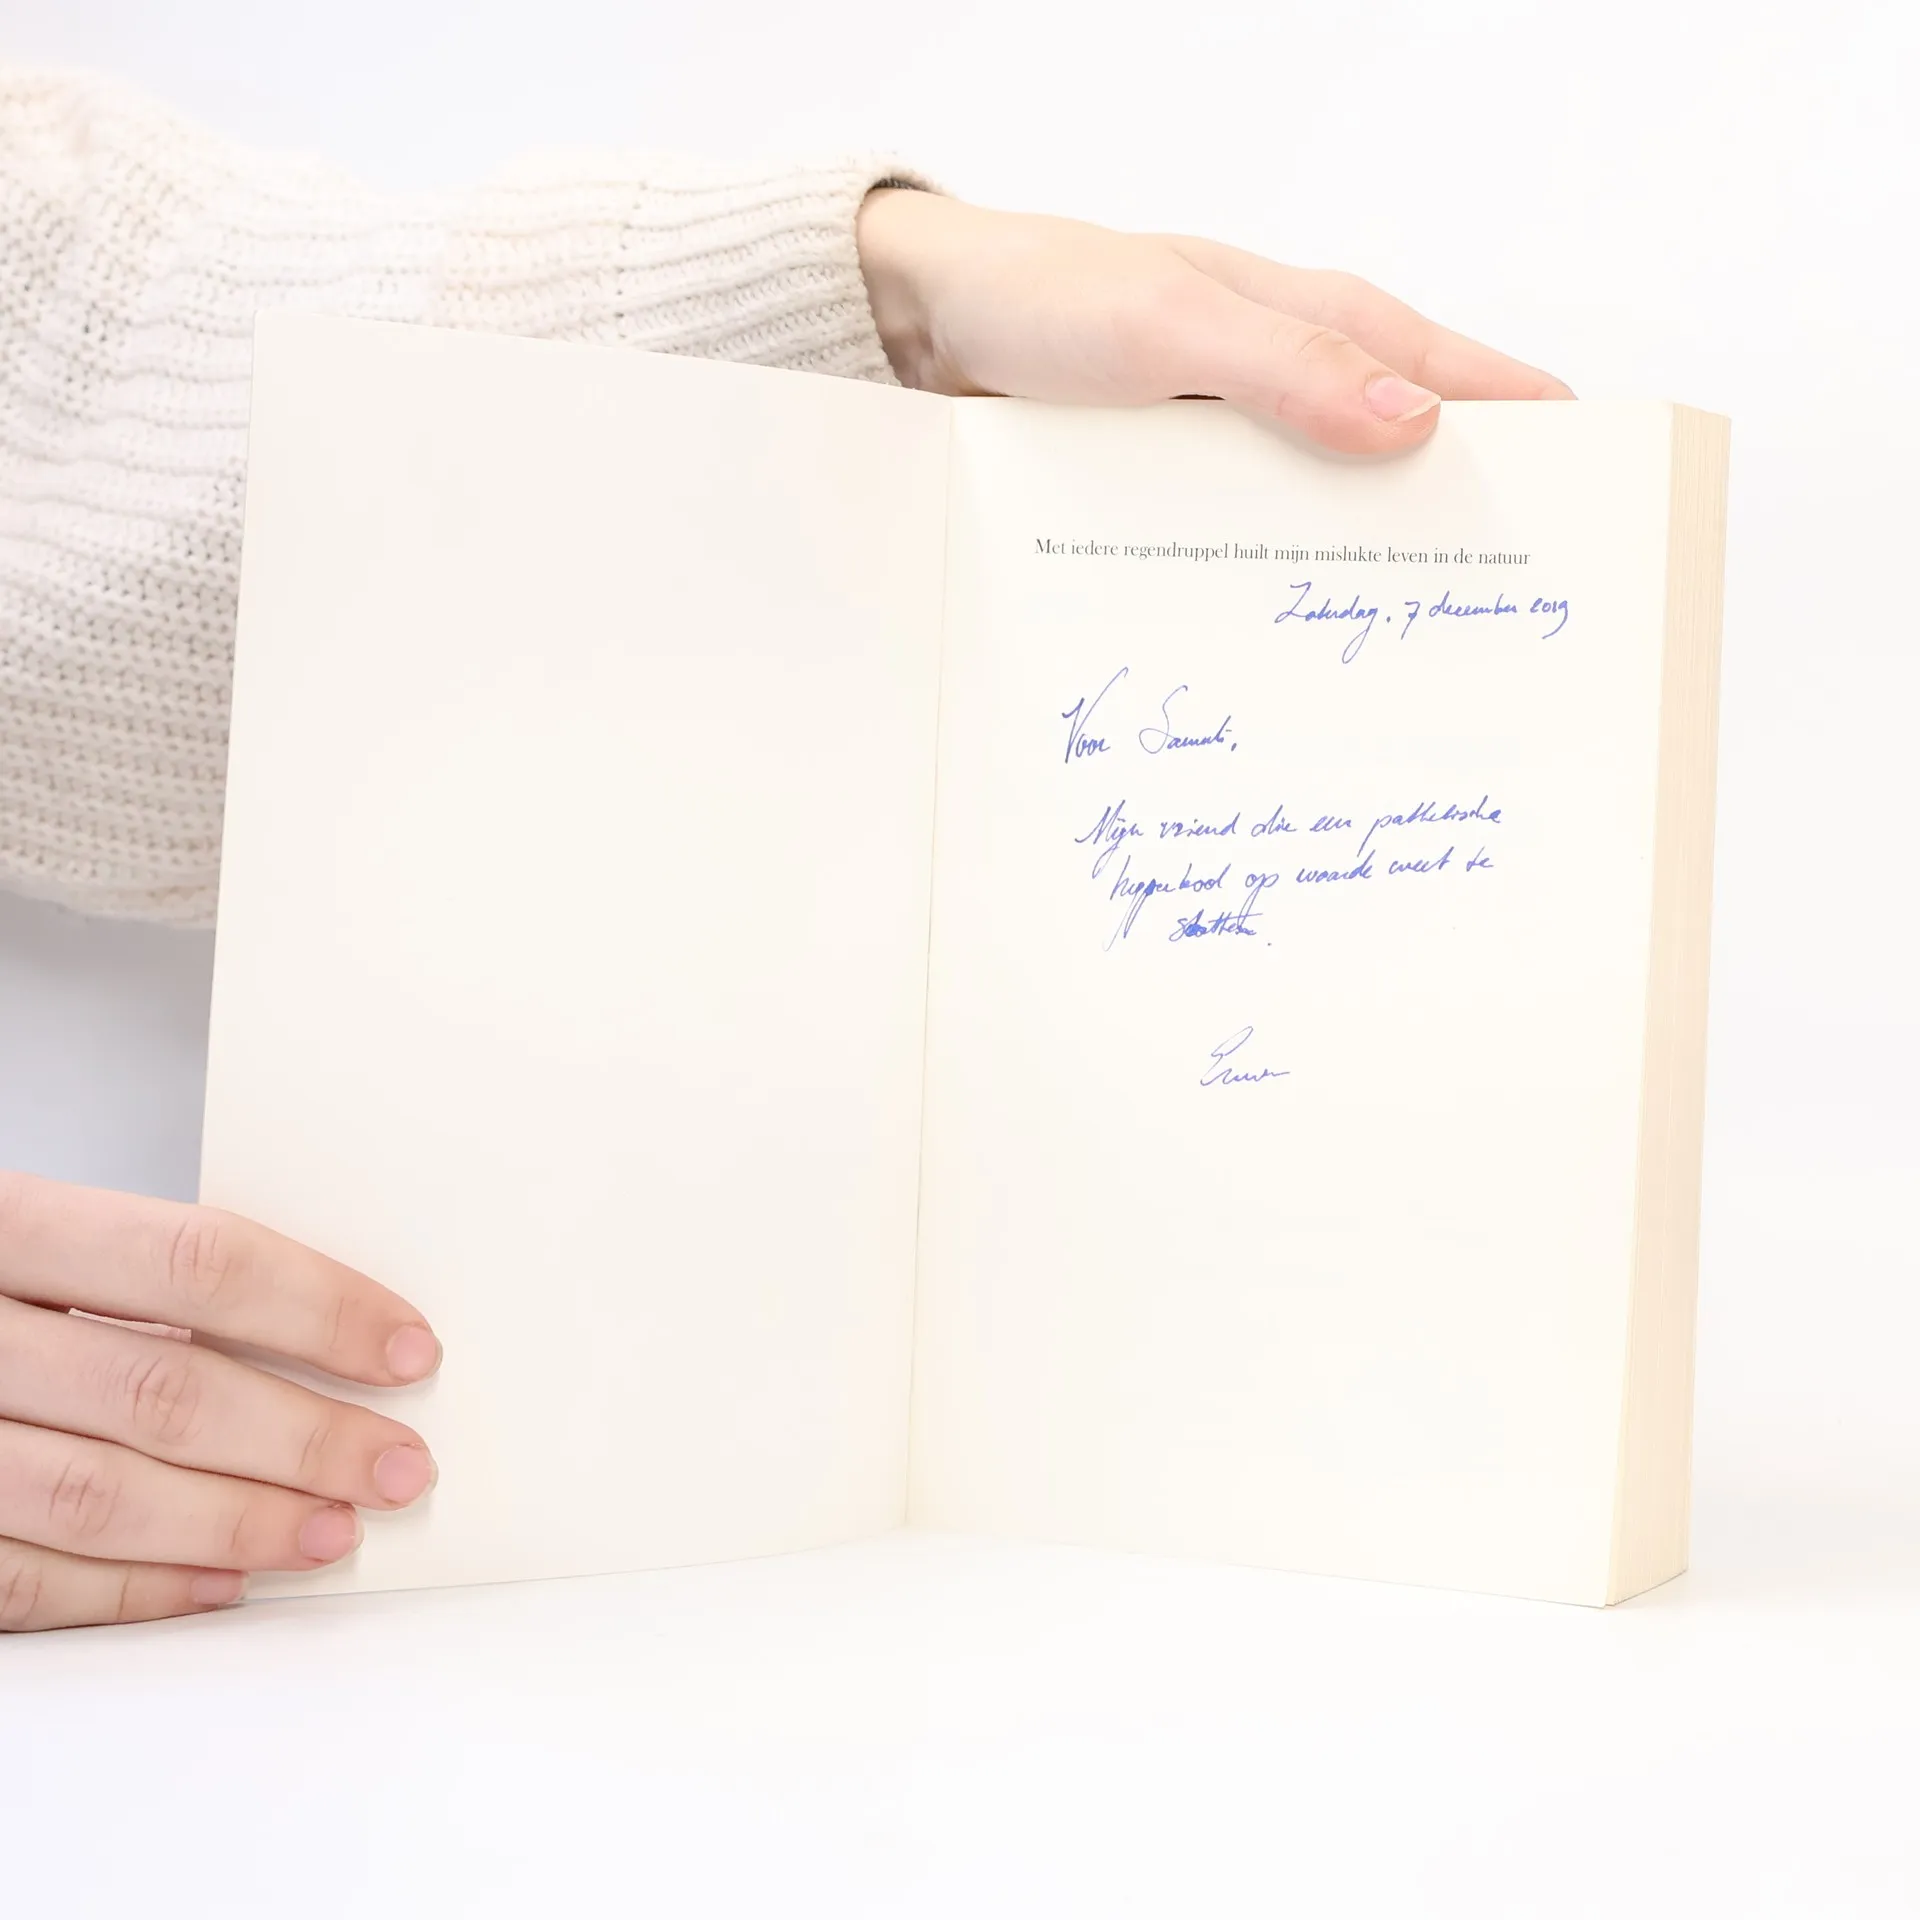 Met iedere regendruppel huilt mijn mislukte leven in de natuur
Zaterdag, 7 december 2019
Voor
Mijn vriend die een pathetische
hyperbool op waarde weet te
schatten.